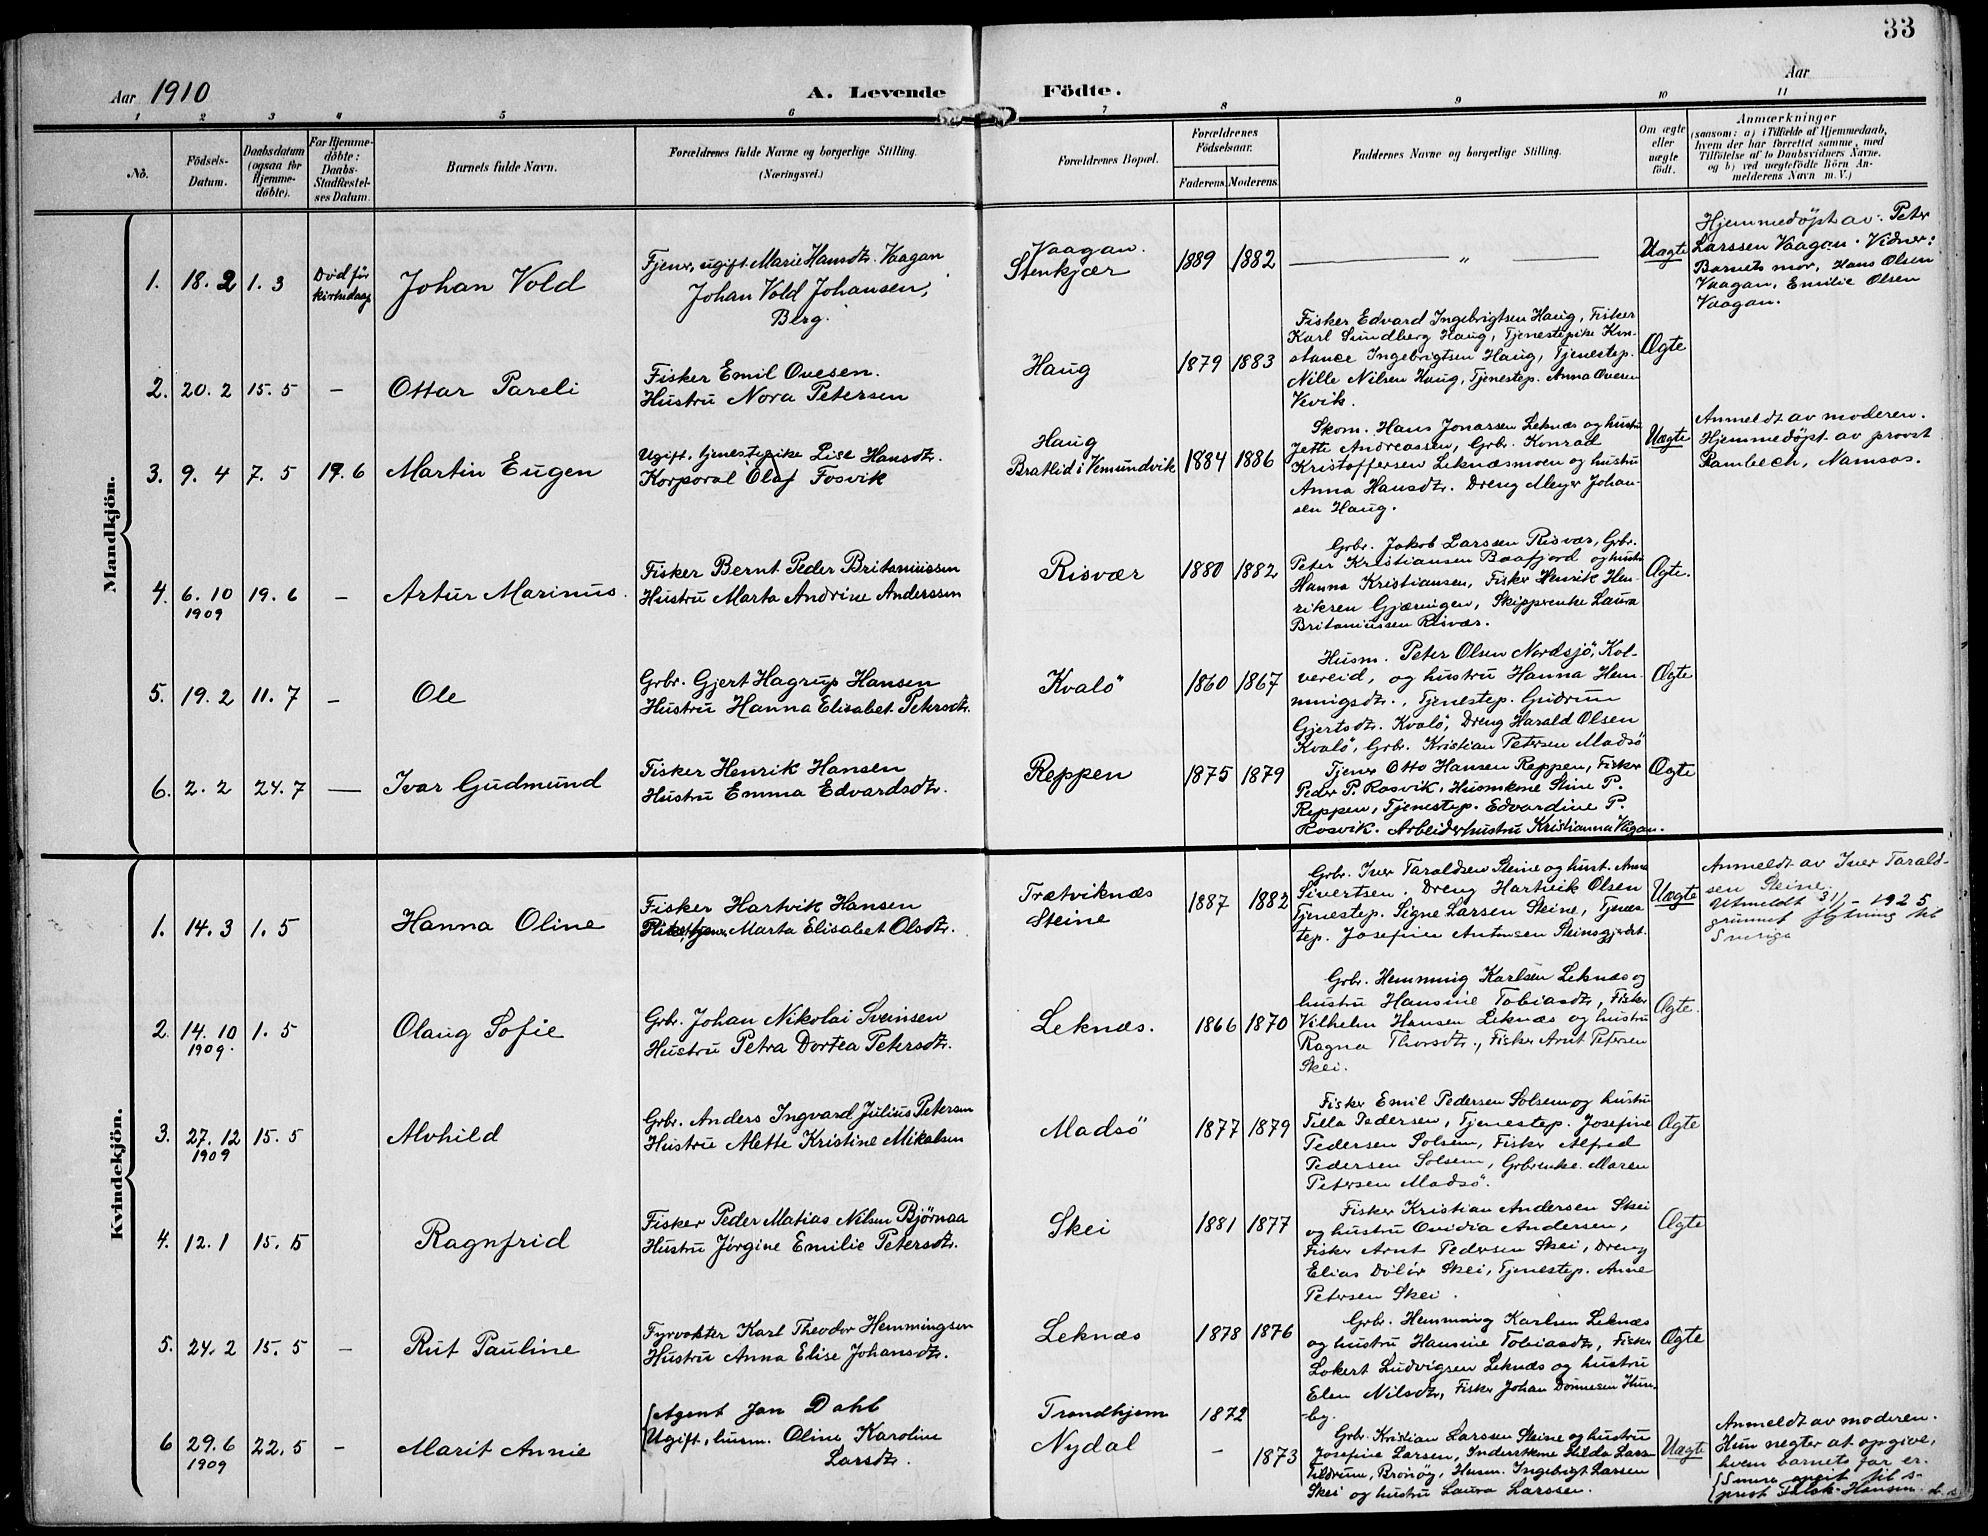 33
Aar 1910
A. Levende Födte.
Aar
1 2 3 4 5 6 7 8 9 10 11
No.
Födsels-
Datum.
Daabsdatum
(ogsaa for
Hjemme-
döbte).
For Hjemme-
döbte:
Daabs-
Stadfæstel-
ses Datum.
Barnets fulde Navn.
Forældrenes fulde Navne og borgerlige Stilling.
(Næringsvei.)
Forældrenes Bopæl.
Forældrenes
Födselsaar.
Faderens. Moderens.
Faddernes Navne og borgerlige Stilling.
Om ægte
eller
uægte
födt.
Anmærkninger
(saasom: a) i Tilfælde af Hjemmedaab,
hvem der har forrettet samme, med
Tilföielse af to Daabsvidners Navne.
og b) ved uægtefödte Börn An-
melderens Navn m. V.)
Mandkjön.
1. 18. 2 1. 3
Död før
kirkedaap
Johan Vold
Fjener, ugift Marie Hansdtr. Vaagan
Johan Vold Johansen,
Berg.
Vaagan.
Stenkjær
1889 1882
— „ —
Uægte
Hjemmedöpt av: Peter
Larssen Vaagan. Vidner:
Barnets mor, Hans Olsen
Vaagan, Emilie Olsen
Vaagan.
2. 20. 2 15. 5 –
Ottar Pareli
Fisker Emil Ovesen.
Hustru Nora Petersen
Haug
1879 1883
Fisker Edvard Ingebrigtsen Haug, Fisker
Karl Sundberg Haug, Tjenestepike Kon-
stance Ingebrigtsen Haug, Tjenestep.
Nille Nilsen Haug, Tjenestep. Anna Ovesen
Vevik.
Ægte
3. 9. 4 7. 5 19. 6
Martin Eugen
Ugift. tjenestepike Lise Hansdtr.
Korporal Olaf Fosvik
Haug
Bratlid i Vemundvik
1884 1886
Skom. Hans Jonassen Leknæs og hustru
Jette Andreassen, Grbr. Konrad
Kristoffersen Leknæsmoen og hustru
Anna Hansdtr. Dreng Meyer Johan-
sen Haug.
Uægte
Anmeldt av moderen.
Hjemmedöpt av provst
Rambech, Namsos.
4. 6. 10 19. 6 –
1909
Artur Marinus.
Fisker Bernt Peder Britaniussen
Hustru Marta Andrine Anderssen
Risvær
1880 1882
Grbr. Jakob Larssen Risvær, Grbr.
Peter Kristiansen Baafjord og hustru
Hanna Kristiansen, Fisker Henrik Hen-
riksen Gjæringen, Skipperenke Laura
Britaniussen Risvær.
Ægte.
5. 19. 2 11. 7 –
Ole
Grbr. Gjert Hagrup Hansen
Hustru Hanna Elisabet Petersdtr.
Kvalö
1860 1867
Husm. Peter Olsen Nordsjö, Kol-
vereid, og hustru Hanna Hem-
mingsdtr., Tjenestep. Gudrun
Gjertsdtr. Kvalö, Dreng Harald Olsen
Kvalö, Grbr. Kristian Petersen Madsö
Ægte
6. 2. 2 24. 7 —
Ivar Gudmund
Fisker Henrik Hansen
Hustru Emma Edvardsdtr.
Reppen
1875 1879
Tjener Otto Hansen Reppen, Fisker
Peder P. Rosvik, Husmkone Stine P.
Reppen, Tjenestep. Edvardine P.
Rosvik. Arbeiderhustru Kristianna Vagan.
Ægte
Kvindekjön.
1. 14. 3 1. 5
Hanna Oline
Fisker Hartvik Hansen
Marta Elisabet Olsdtr.
Trætviknæs
Steine
1887 1882
Grbr. Iver Taraldsen Steine og hust. Anna
Sivertsen. Dreng Hartvik Olsen
Tjenestep. Signe Larsen Steine, Tjenes
tep. Josefine Antonsen Steinsgjerdet.
Uægte
Anmeldt av Iver Tarald-
sen Steine.
Utmeldt 31/1 – 1925
grunnet flytning til
Sverige
2. 14. 10 1. 5
1909.
Olaug Sofie
Grbr. Johan Nikolai Svensen
Hustru Petra Dortea Petersdtr.
Leknæs.
1866 1870
Grbr. Hemming Karlsen Leknæs og
hustru Hansine Tobiasdtr, Fisker
Vilhelm Hansen Leknæs og hustru
Ragna Thorsdtr., Fisker Arnt Petersen
Skei.
Ægte.
3. 27. 12 15. 5
1909
Alvhild
Grbr. Anders Ingvard Julius Petersen
Hustru Alette Kristine Mikalsen
Madsö
1877 1879
Fisker Emil Pedersen Solsem og hustru
Tilla Pedersen, Tjenestep. Josefine
Pedersen Solsem, Fisker Alfred
Pedersen Solsem, Grbrenke Maren
Petersen Madsö.
Ægte
4. 12. 1 15. 5
Ragnfrid
Fisker Peder Matias Nilsen Björnaa
Hustru Jörgine Emilie Petersdtr.
Skei
1881 1877
Fisker Kristian Andersen Skei
og hustru Ovidia Andersen,
Fisker Arnt Pedersen Skei, Dreng
Elias Skei, Tjenestep. Anne
Petersen Skei.
Ægte
5. 24. 2 15. 5 –
Rut Pauline
Fyrvokter Karl Theodor Hemmingsen
Hustru Anna Elise Johansdtr.
Leknæs
1878 1876
Grbr. Hemming Karlsen Leknæs
og hustru Hansine Tobiasdtr, Fisker
Lokert Ludvigsen Leknæs og hustru
Elen Nilsdtr, Fisker Johan Dönnesen Hun-
by.
Ægte
6 29. 6 22. 5 –
1909
Marit Annie
Agent Jan Dahl
Ugift, husm. Oline Karoline
Larsdtr.
Trondhjem
Nydal
1872
– 1873
Grbr. Kristian Larssen Steine og hustru
Josefine Larsen, Inderstkone Hilda Lars-
Tildrum, Brönöy, Husm. Ingebrigt Larssen
Skei og hustru Laura Larssen.
Uægte
Anmeldt av moderen.
Hun negter at opgive,
hvem barnets far er.
Senere opgit til s-
prest Falch-Hansen.